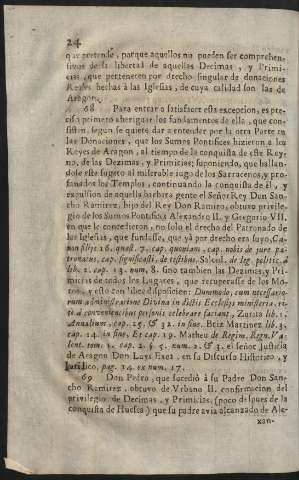 24
que pretende, porque aquellos no pueden ser comprehen-
sivos de la libertad de aquellas Decimas, y Primi-
cias, que pertenecen por drecho singular de donaciones
Reales hechas à las Iglesias, de cuya calidad son las de
Aragon.
68 Para entrar à satisfacer esta excepcion, es pre-
ciso primero aberiguar los fundamentos de ella, que con-
sisten, segun se quiere dar a entender por la otra Parte en
las Donaciones, que los Sumos Pontifices hizieron à los
Reyes de Aragon, al tiempo de la conquista de este Rey-
no, de las Dezimas, y Primicias; suponiendo, que hallan-
dose este sugeto al miserable iugo de los Sarracenos, y pro-
fanados los Templos, continuando la conquista de él, y
expulsion de aquella barbara gente el Señor Rey Don San-
cho Ramirez, hijo del Rey Don Ramiro, obtuvo privile-
gio de los Sumos Pontifices Alexandro II. y Gregorio VII.
en que le concedieron, no solo el drecho del Patronado de
las Iglesias, que fundasse, que yà por drecho era suyo,
16. quæst. 7. cap. quoniam, cap. nobis de jure pa-
tronatus, cap. significasti, de testibus, Salced. de leg. politic.
lib. 2. cap. 13. num. 8. sino tambien las Dezimas, y Pri-
micias de todos los Lugares, que recuperasse de los Mo-
ros, y esto con
Zurita lib. 1.
Annalium, cap. 25. & 32. in fine. Briz Martinez lib. 3.
cap. 14. in fine, Et cap. 19. Matheu de Regim. Regn. Va-
lent. tom. 1. cap. 2. §. 5. num. 2. & 3. el señor Justicia
de Aragon Don Luys Exea, en su Discurso Historico, y
Juridico, pag. 14. ex num. 17.
69 Don Pedro, que sucedió à su Padre Don San-
cho Ramirez, obtuvo de Urbano II. confirmacion del
privilegio de Decimas, y Primicias, (poco despues de la
conquista de Huesca) que su padre avia alcanzado de Ale-
xan-